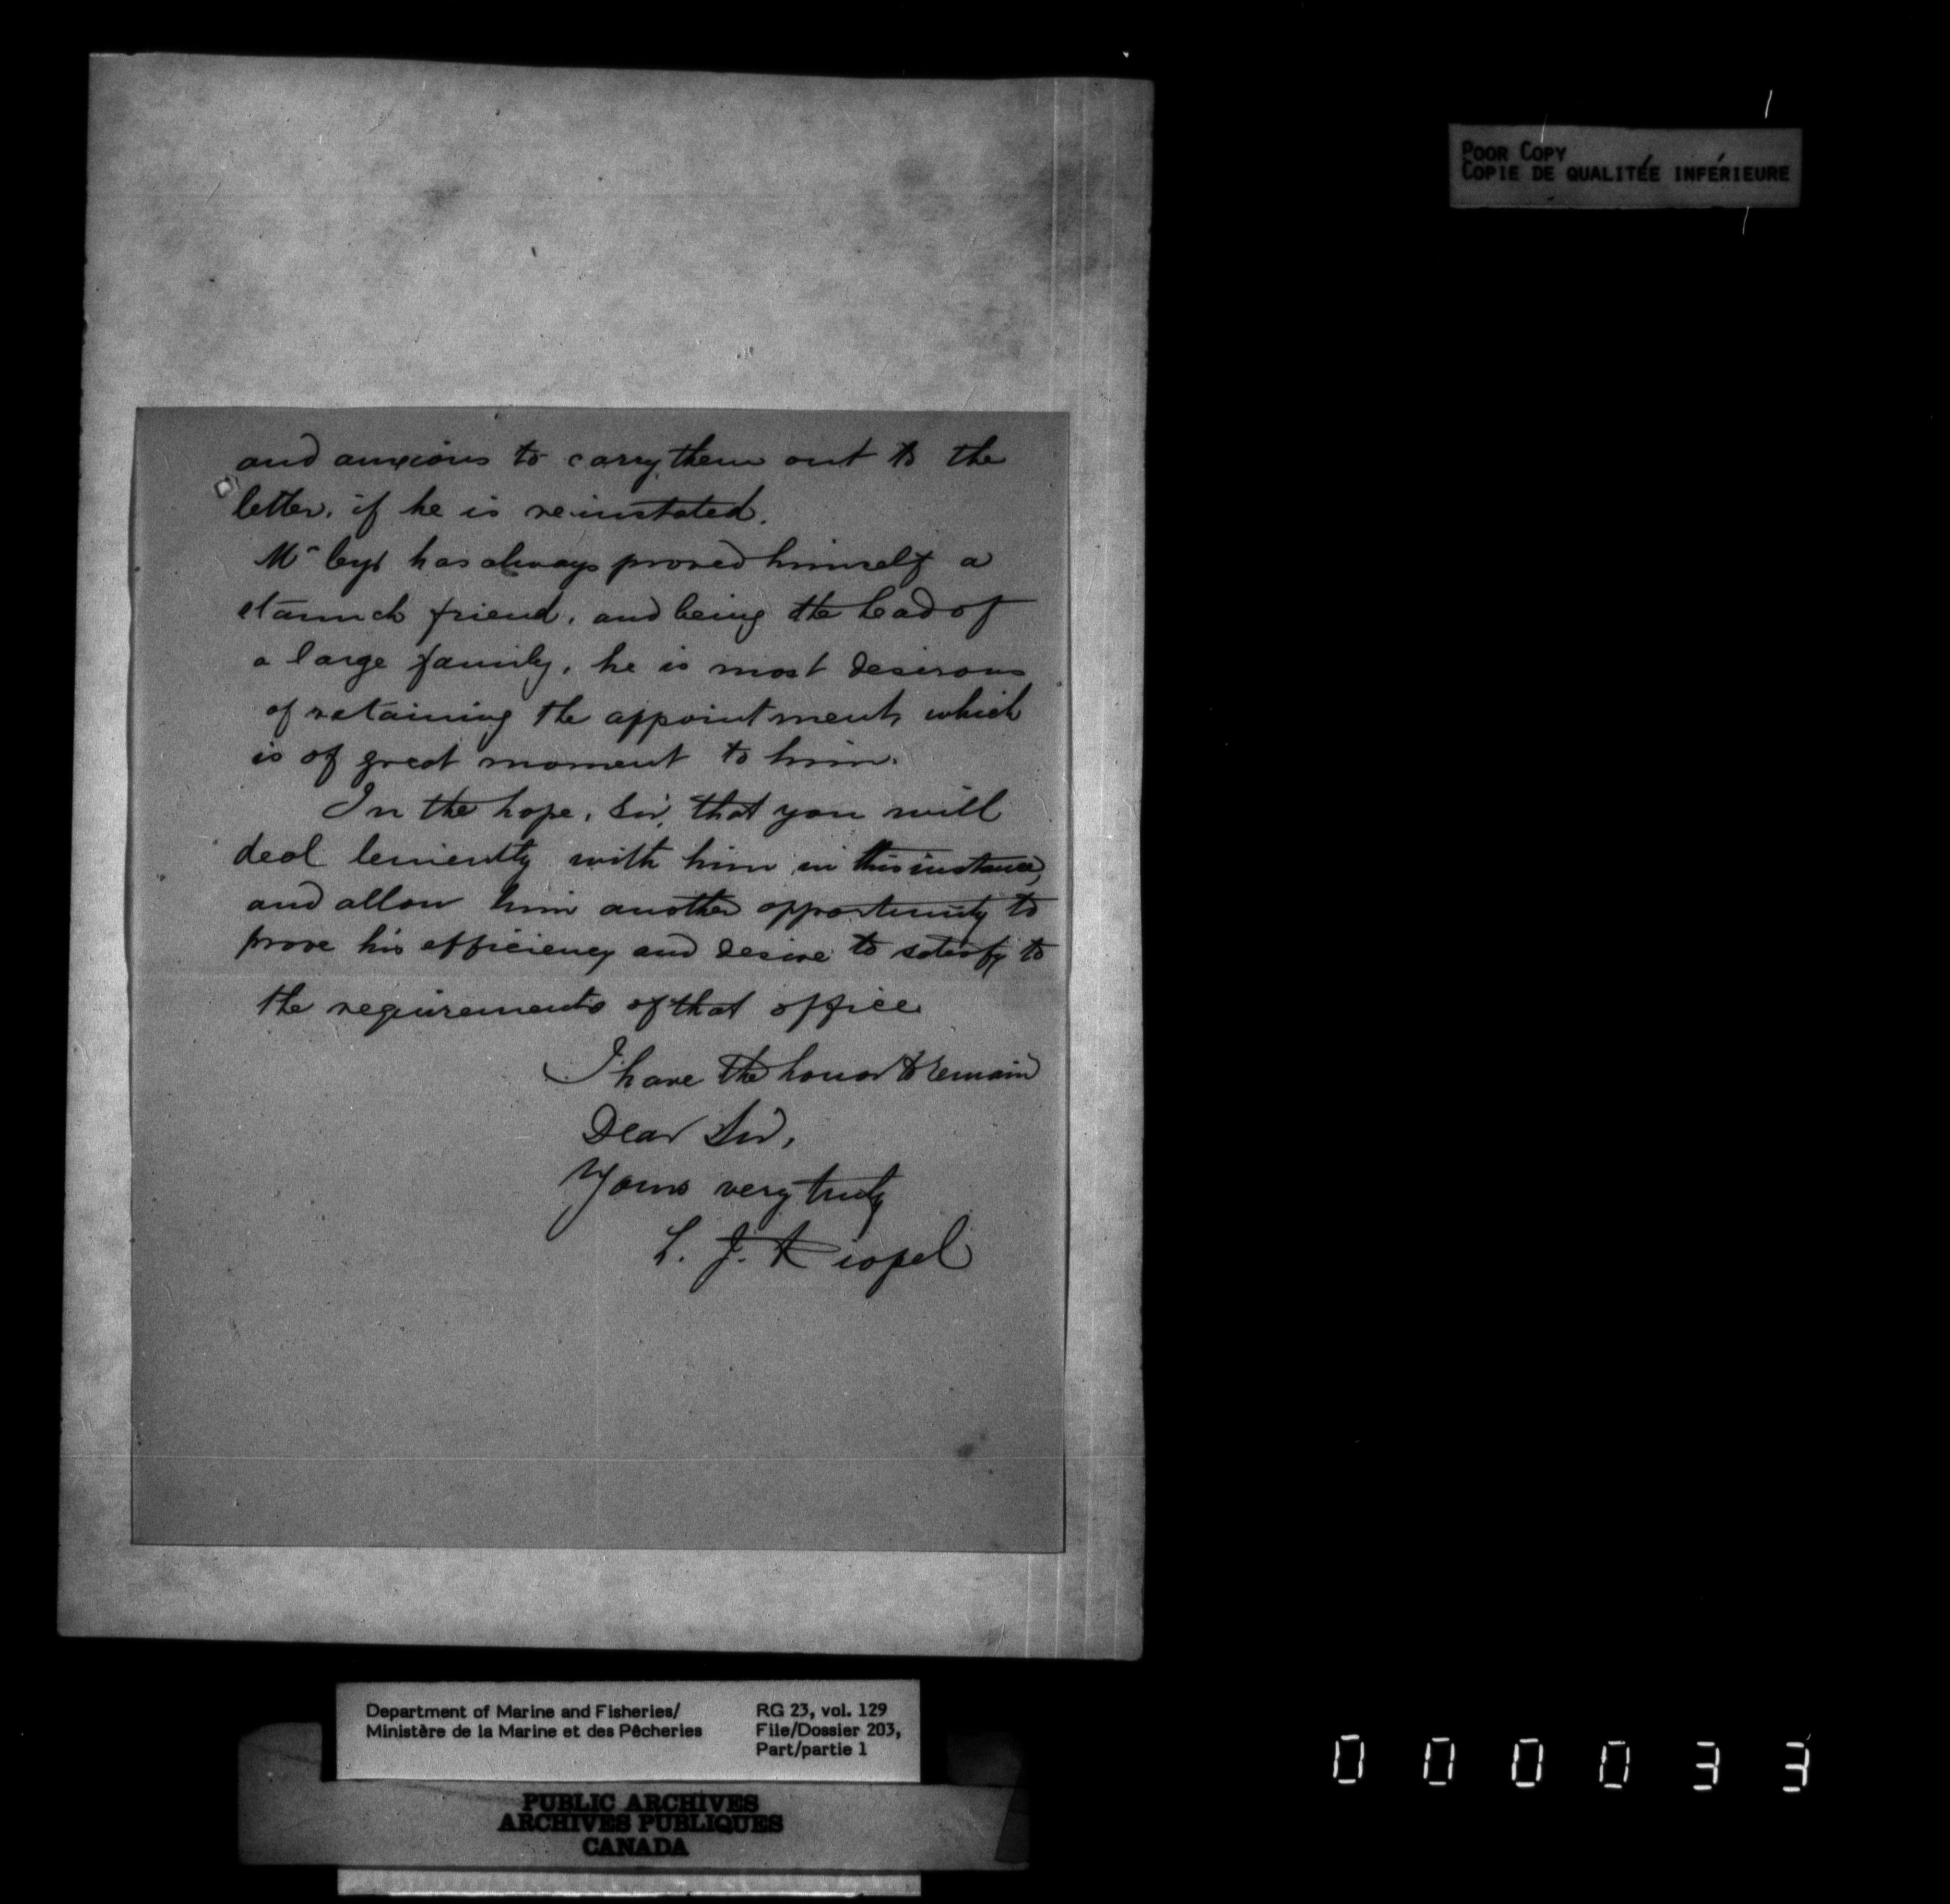 and anxious to carry them out to the
letter, if he is reinstated.
Mr Cyr has always proved himself a
staunch friend, and being the head of
a large family, he is most desirous
of retaining the appointment, which
is of great moment to him.
In the hope, Sir, that you will
deal leniently with him in this instance,
and allow him another opportunity to
prove his efficiency and desire to satisfy to
the requirements of that office
I have the honor to remain
Dear Sir,
Yours very truly
L. J. Riopel
POOR COPY
COPIE DE QUALITÉE INFÉRIEURE
Department of Marine and Fisheries/
Ministère de la Marine et des Pêcheries
RG 23, vol. 129
File/Dossier 203,
Part/partie 1
PUBLIC ARCHIVES
ARCHIVES PUBLIQUES
CANADA
000033